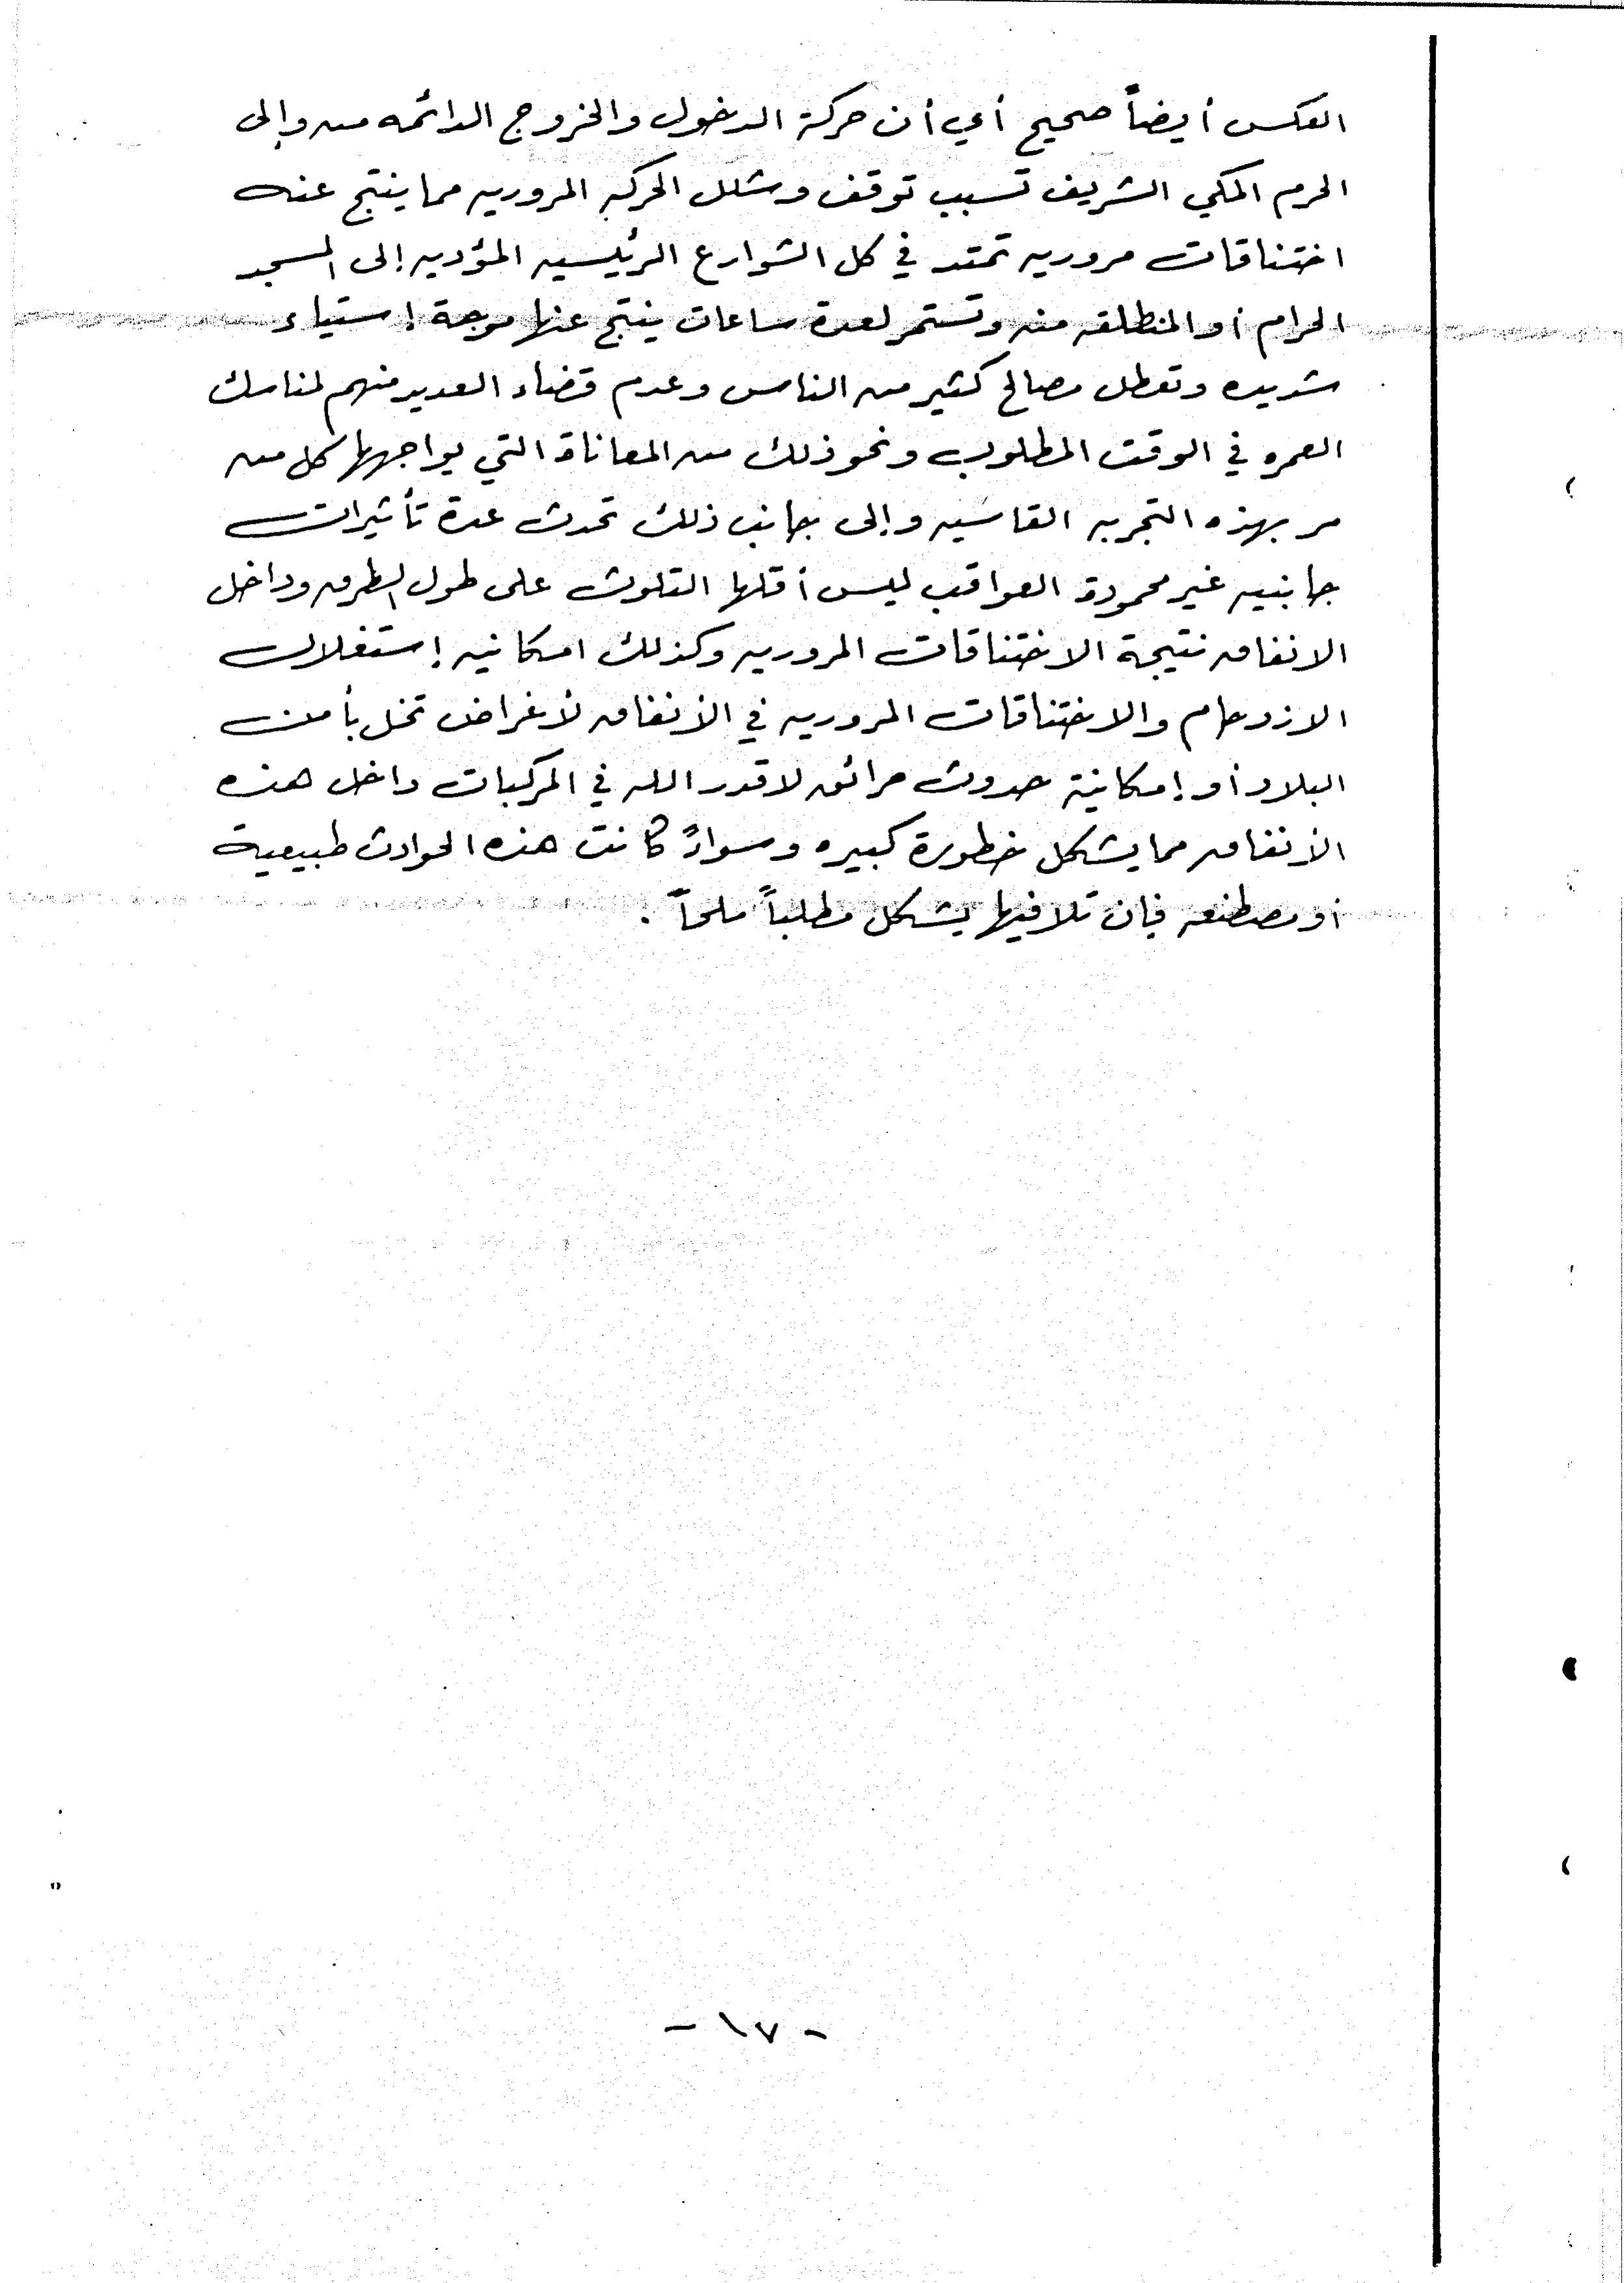 العكس أيضاً صحيح أي أن حركة الدخول والخروج الدائمه من وإلى
الحرم المكي الشريف تسبب توقف وشلل الحركه المروريه مما ينتج عنه
اختناقات مروريه تمتد في كل الشوارع الرئيسيه المؤديه إلى المسجد
الحرام أو المنطلقه منه وتستمر لعدة ساعات ينتج عنها موجة إستياء
شديده وتعطل مصالح كثير من الناس وعدم قضاء العديد منهم لمناسك
العمره في الوقت المطلوب ونحو ذلك من المعاناة التي يواجهها كل من
مر بهذه التجربه القاسيه وإلى جانب ذلك تحدث عدة تأثيرات
جانبيه غير محمودة العواقب ليس أقلها التلوث على طول الطرق وداخل
الانفاق نتيجة الاختناقات المروريه وكذلك امكانيه إستغلال
الازدحام والاختناقات المروريه في الأنفاق لأغراض تخل بأمن
البلاد أو إمكانية حدوث حرائق لاقدر الله في المركبات داخل هذه
الأنفاق مما يشكل خطورة كبيره وسواءً كانت هذه الحوادث طبيعية
أو مصطنعه فإن تلافيها يشكل مطلباً ملحاً .
- ١٧ -